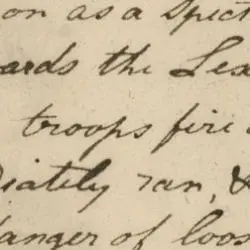 on as a spect
ards the Lex
troops fire
diately ran, &
danger of loos